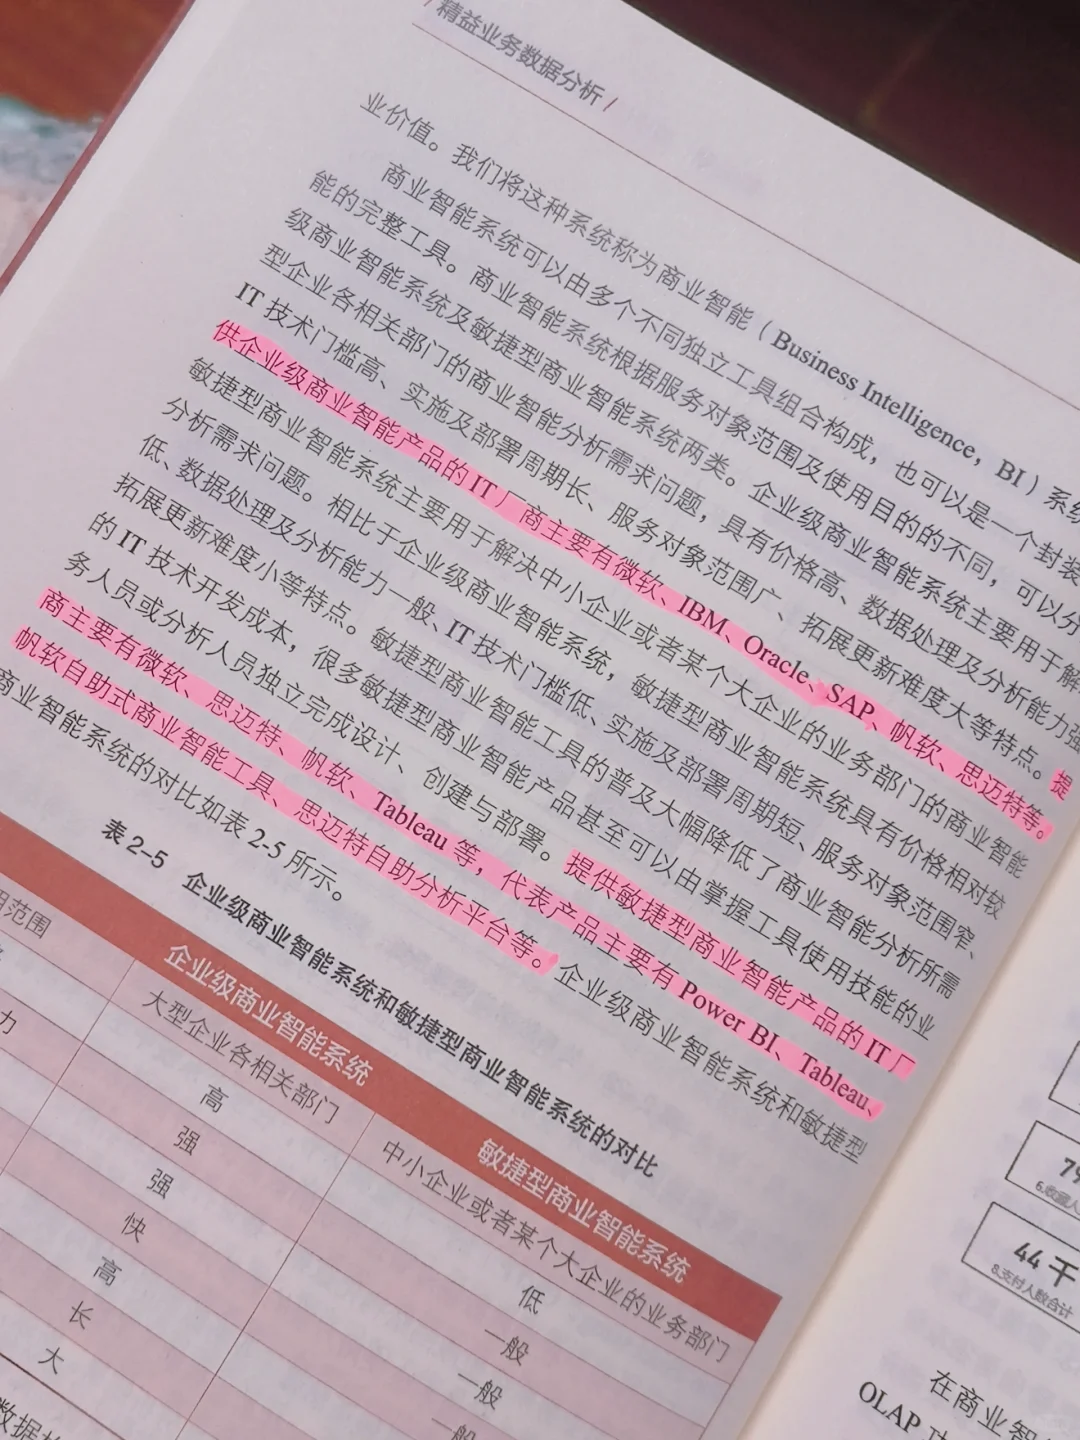 / 精益业务数据分析 /
业价值。我们将这种系统称为商业智能（Business Intelligence，BI）系统
商业智能系统可以由多个不同独立工具组合构成，也可以是一个封装
能的完整工具。商业智能系统根据服务对象范围及使用目的的不同，可以分
级商业智能系统及敏捷型商业智能系统两类。企业级商业智能系统主要用于解
型企业各相关部门的商业智能分析需求问题，具有价格高、数据处理及分析能力强
IT 技术门槛高、实施及部署周期长、服务对象范围广、拓展更新难度大等特点。提
供企业级商业智能产品的 IT 厂商主要有微软、IBM、Oracle、SAP、帆软、思迈特等。
敏捷型商业智能系统主要用于解决中小企业或者某个大企业的业务部门的商业智能
分析需求问题。相比于企业级商业智能系统，敏捷型商业智能系统具有价格相对较
低、数据处理及分析能力一般、IT 技术门槛低、实施及部署周期短、服务对象范围窄、
拓展更新难度小等特点。敏捷型商业智能工具的普及大幅降低了商业智能分析所需
的 IT 技术开发成本，很多敏捷型商业智能产品甚至可以由掌握工具使用技能的业
务人员或分析人员独立完成设计、创建与部署。提供敏捷型商业智能产品的 IT 厂
商主要有微软、思迈特、帆软、Tableau 等，代表产品主要有 Power BI、Tableau、
帆软自助式商业智能工具、思迈特自助分析平台等。企业级商业智能系统和敏捷型
商业智能系统的对比如表 2-5 所示。
表 2-5 企业级商业智能系统和敏捷型商业智能系统的对比
企业级商业智能系统 敏捷型商业智能系统
用范围 大型企业各相关部门 中小企业或者某个大企业的业务部门
高 低
力 强 一般
强 一般
快 一般
高
长
大
数据
44 千
8.支付人数合计
在商业智
OLAP 功